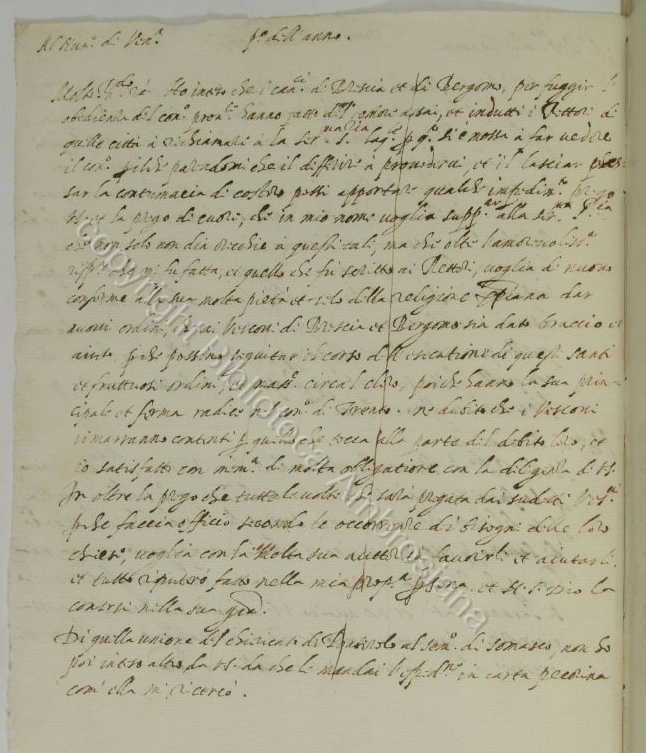 Al Nun.º di Ven.ª p.º dell'anno.
Molto R.do s.re Ho inteso che i can.ci di Brescia et di Bergomo, per fuggir l'
obedienza del con.º prov.le hanno fatto romore assai, et indutti i Rettori di
quelle città à richiamarsi à la Ser.ma et s'è mossa à far vedere
il con.º che parendomi che il differire à provedervi, et il lasciar pas
sar la contumacia di costoro possi apportare qualche impedim.º prego
V.S. et la prego di cuore, che in mio nome voglia supp.re alla Ser.ma S.ria
che non solo non dia orecchie à questi tali, ma che oltre l'amorevoliss.ª
risp.ª che mi fu fatta, et quello che fu scritto ai Rettori, voglia di nuovo
conforme alla sua molta pietà et zelo della religione dar
nuovi ordini, ai Vescovi di Brescia et Bergomo sia dato braccio et
aiuto, perche possino seguitar il corso dell'essecutione di questi santi
et fruttuosi ordini, et mass.e circa'l clero, poiche hanno la sua prin
cipale et ferma radice nel con.º di Trento. ne dubito che i Vescovi
rimarranno contenti per quello che tocca alla parte del debito loro, et
io satisfatto con mem.ª di molta obligatione con la diligenza di V.S.
In oltre la prego che tutte le volte che sarà pregata dai sudetti Vesc.vi
perche faccia officio secondo le occorrenze dei bisogni delle loro
chiese, voglia con la molta sua autt.tà favorirli et aiutarli
et tutto riputerò fatto nella mia prop.ª persona. et N. S. Dio la
conservi nella sua gra.
Di quella unione del chiericato di al sem.º di Somasco, non ho
poi inteso altro da V.S. da che le mandai l'esped.ne in carta pecorina
com'ella mi ricercò.
copyright Biblioteca Ambrosiana